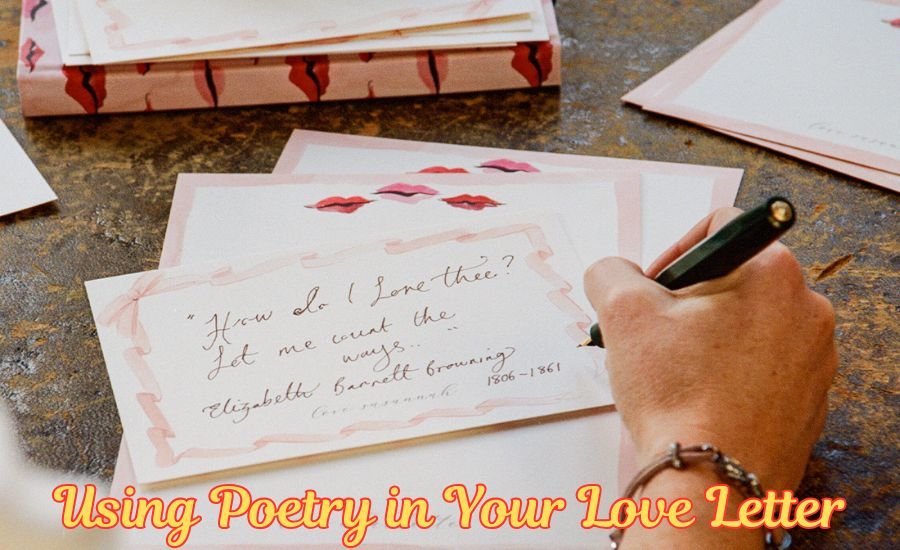 "How do I Love thee?
Let me count the
ways.. "
Elizabeth Barrett Browning
1806-1861
love susannah
love susannah
Using Poetry in Your Love Letter